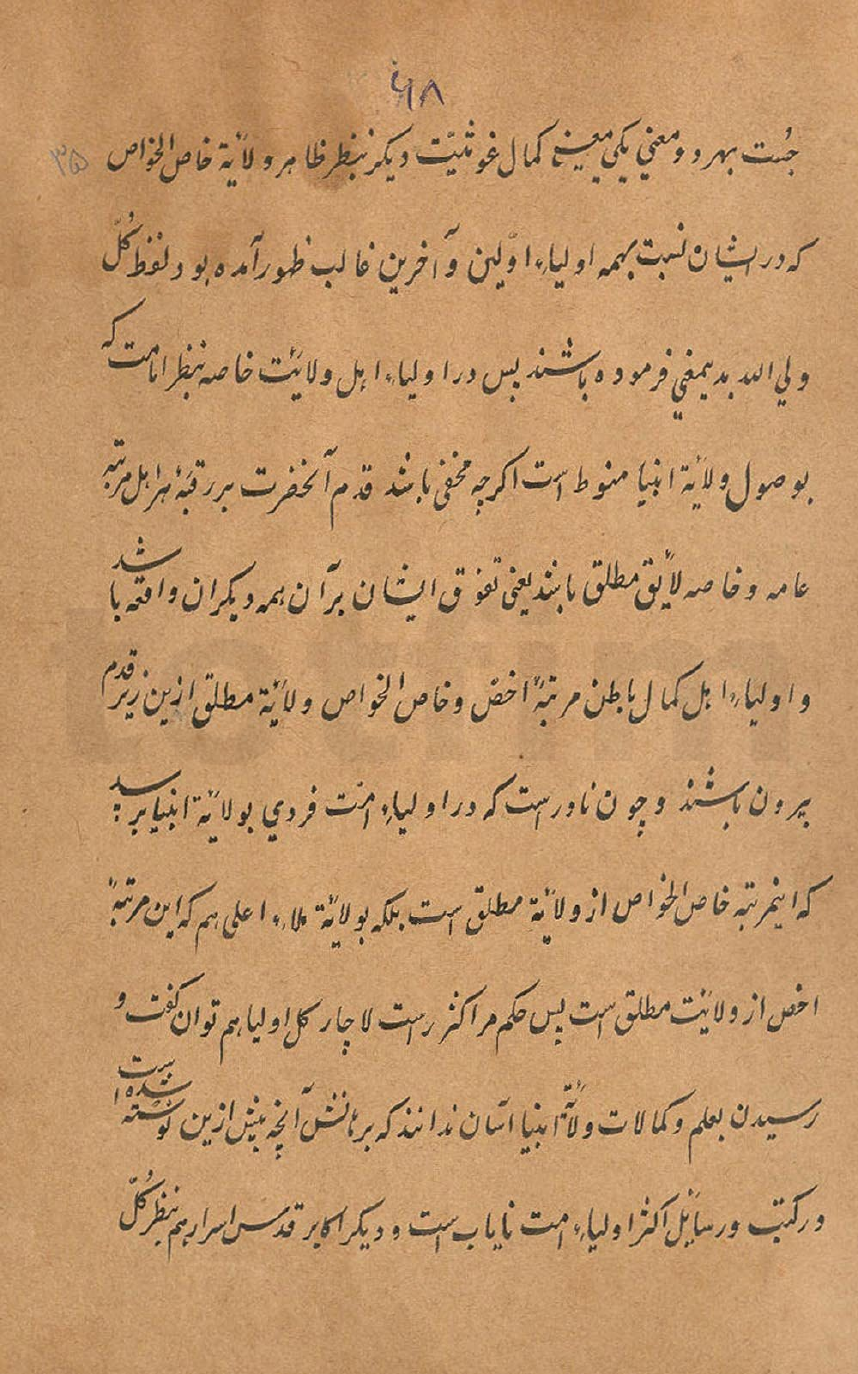 ۶۸
۳۵
جست بهر دو معنی یکی بمعنی کمال غوثیّت دیگر بنظر ظاهر ولایة خاص الخواص
که در ایشان نسبت بهمه اولیاء اوّلین و آخرین غالب ظهور آمده بود لفظ کُلّ
ولی الله بدیمعنی فرموده باشند پس در اولیاء اهل ولایت خاصه بنظر امامت که
بوصول ولایة انبیا منوط است اکرچه مخفی باشد قدم آنحضرت بر رقبهٔ هر اهل مرتبه
عامه و خاصه لایق مطلق باشد یعنی تفوّق ایشان بر آن همه دیکران واقعه باشد
و اولیاء اهل کمال باطن مرتبهٔ اخصّ و خاص الخواص ولایة مطلق ازین زیر قدم
بیرون باشند و چون نادرست که در اولیاء امّت فردی بولایة انبیا برسد
که اینمرتبه خاص الخواص از ولایة مطلق است بلکه بولایة ملاء اعلی هم که این مرتبهٔ
اخص از ولایت مطلق است پس حکم مر اکثر راست لاچار کل اولیا هم توان کفت و
رسیدن بعلم و کمالات ولایة انبیا آسان ندانند که برهانش آنچه پیش ازین نوشته شده است
در کتب و رسایل اکثر اولیاء امت نایاب است و دیکر اکابر قدس اسرارهم بنظر کُلّ